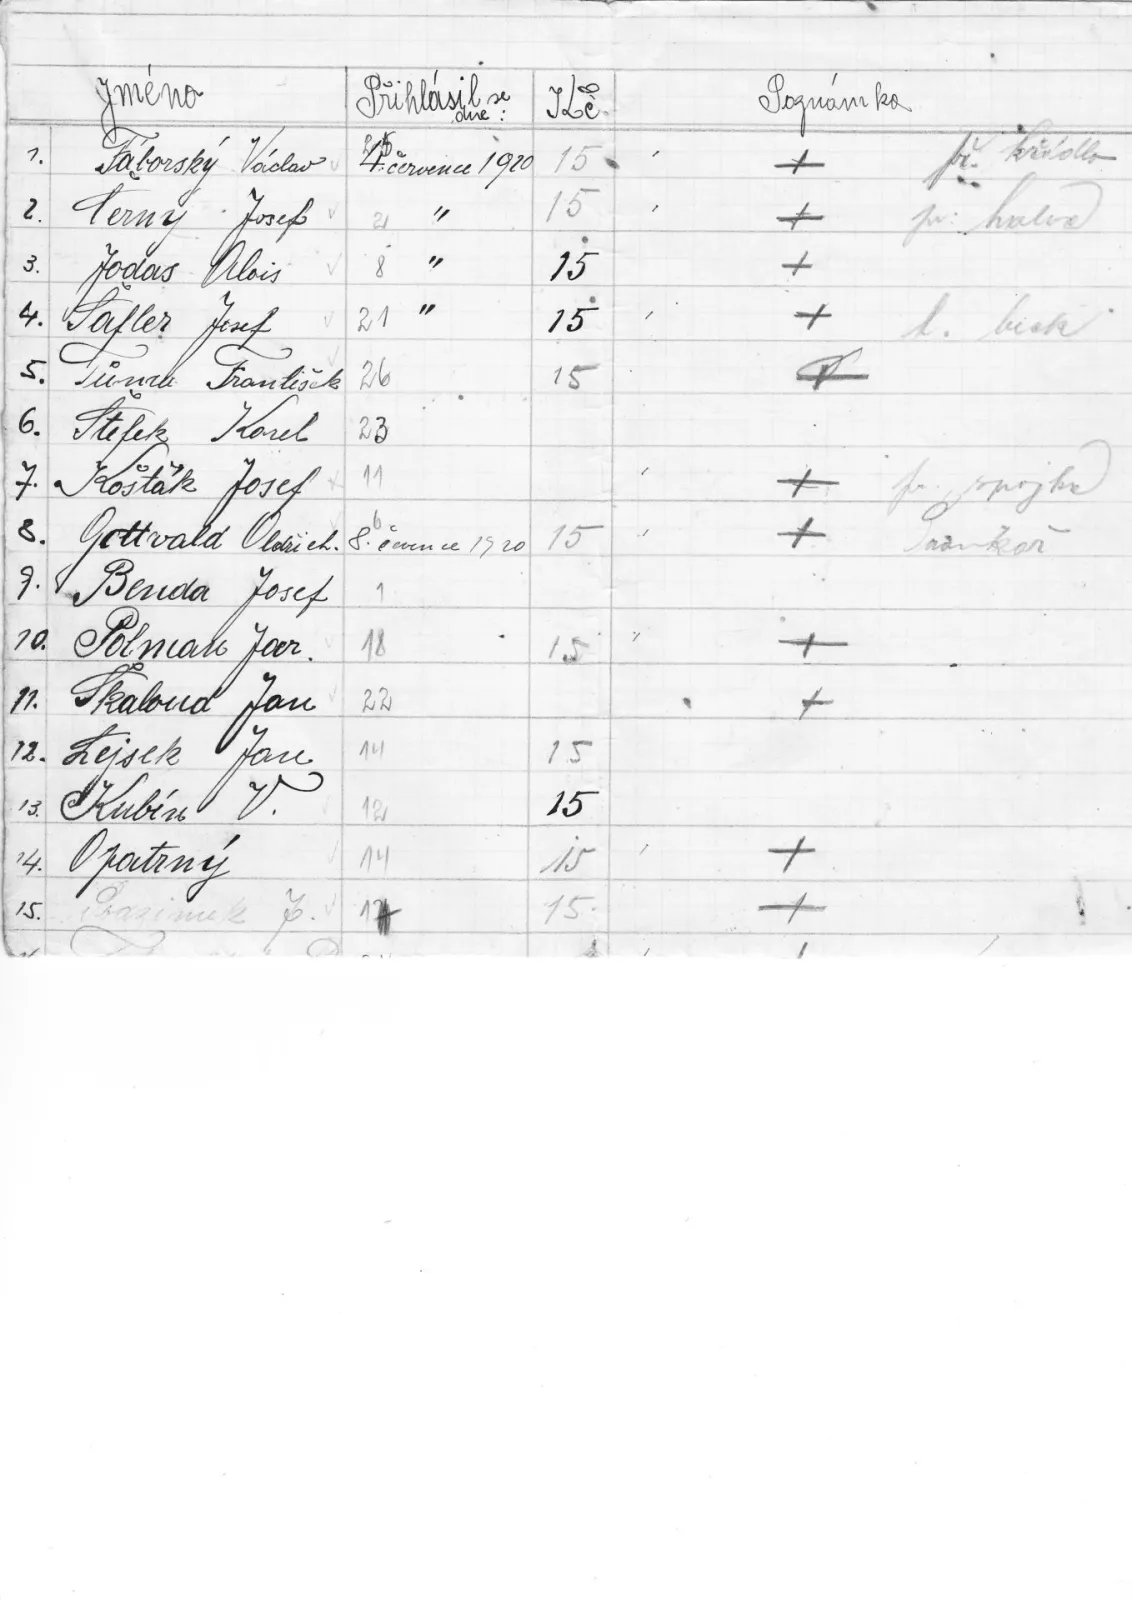 Jméno Přihlásil se dne: Kč Poznámka
1. Táborský Václav 4. července 1920 15 + př. křídlo
2. Černý Josef " 15 +
3. Jodas Alois 8 " 15 +
4. Šafler Josef 21 " 15 +
5. Tůma František 26 15
6. Štefek Karel 23
7. Košťák Josef 11 + pr. spojka
8. Gottvald Oldřich. 8. července 1920 15 + Brankář
9. Benda Josef 1
10. Polman Jar. 18 15 +
11. Škaloud Jan 22 +
12. Lejsek Jan 14 15
13. Kubín V. 12 15
14. Opatrný 14 15 +
15. J. 15 +